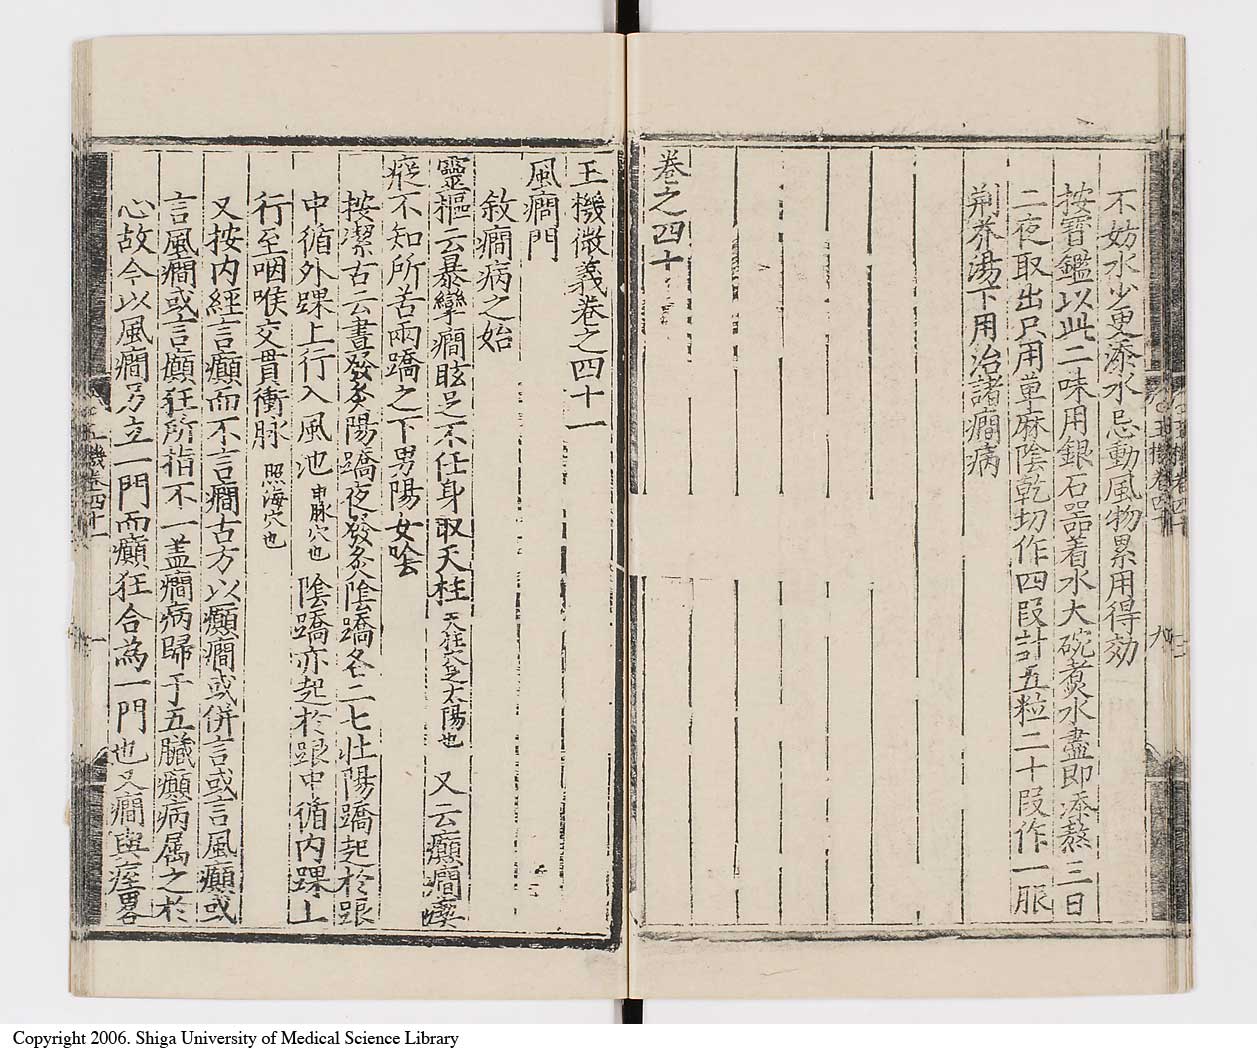 不妨水少更添水忌動風物累用得効
按寶鑑以此二味用銀石器着水大碗煑水盡即添熬三日
二夜取出只用萆麻陰乾切作四段計五粒二十段作一服
荆芥湯下用治諸癎病
卷之四十
玉機微義卷之四十一
風癎門
敘癎病之始
靈樞云暴攣癎眩足不任身取天柱 天柱穴足太陽也 又云癲癎瘈
瘲不知所苦兩蹻之下男陽女陰
按潔古云晝發灸陽蹻夜發灸陰蹻各二七壯陽蹻起於跟
中循外踝上行入風池 申脉穴也 陰蹻亦起於跟中循内踝上
行至咽喉交貫衝脉 照海穴也
又按内經言癲而不言癎古方以癲癎或併言或言風癲或
言風癎或言癲狂所指不一盖癎病歸于五臟癲病属之於
心故今以風癎另立一門而癲狂合為一門也又癎與痓畧
Copyright 2006. Shiga University of Medical Science Library